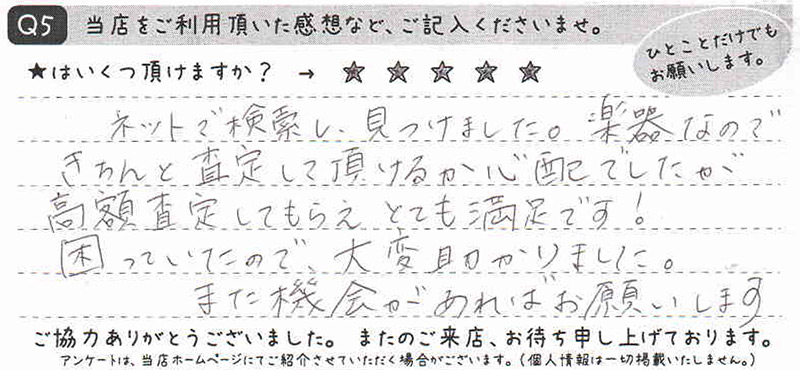 Q5 当店をご利用頂いた感想など、ご記入くださいませ。
ひとことだけでも
お願いします。
★はいくつ頂けますか? → ★ ★ ★ ★ ★
ネットで検索し、見つけました。楽器なので
きちんと査定して頂けるか心配でしたが
高額査定してもらえ とても満足です!
困っていたので、大変助かりました。
また機会があればお願いします
ご協力ありがとうございました。 またのご来店、お待ち申し上げております。
アンケートは、当店ホームページにてご紹介させていただく場合がございます。(個人情報は一切掲載いたしません。)